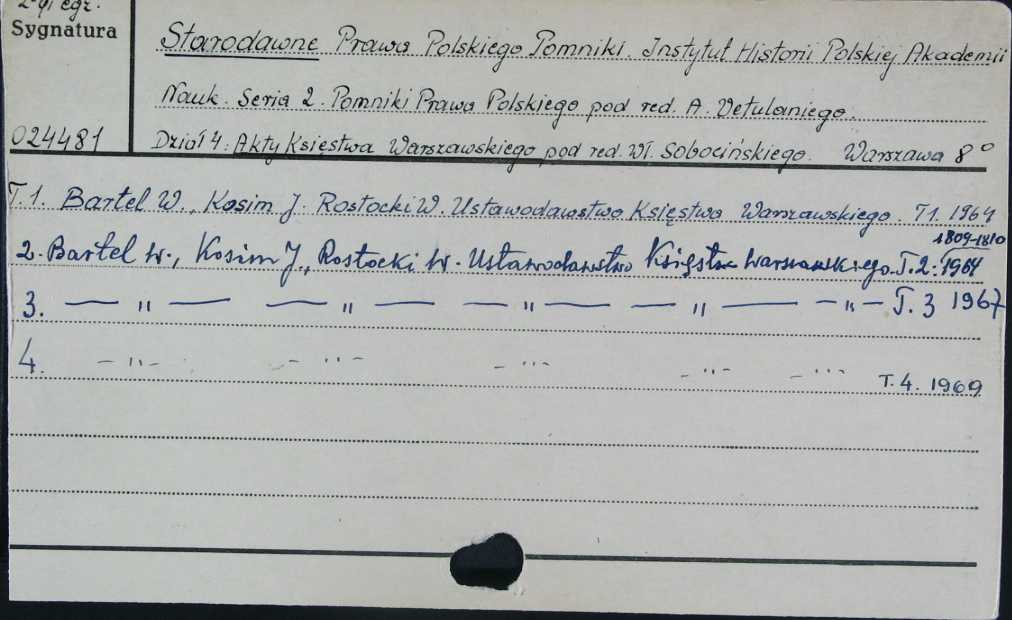 2-gi egz.
Sygnatura
Starodawne Prawa Polskiego Pomniki. Instytut Historii Polskiej Akademii
Nauk. Seria 2. Pomniki Prawa Polskiego pod red. A. Vetulaniego.
024481 Dział 4: Akty Księstwa Warszawskiego pod red. Wł. Sobocińskiego. Warszawa 8°
T.1. Bartel W., Kosim J. Rostocki W. Ustawodawstwo Księstwa Warszawskiego. T1. 1964
1809-1810
2. Bartel W., Kosim J., Rostocki W. Ustawodawstwo Księstwa Warszawskiego. T.2: 1964
3. — " — — " — — " — — " — — " — T. 3 1967
4. - " - - " - - " - - " - - " -
T.4. 1969